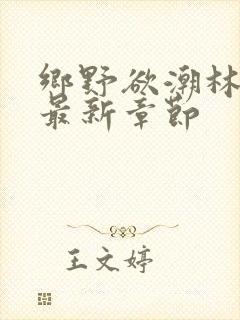 鄉野欲潮林
最新章節
王文婷